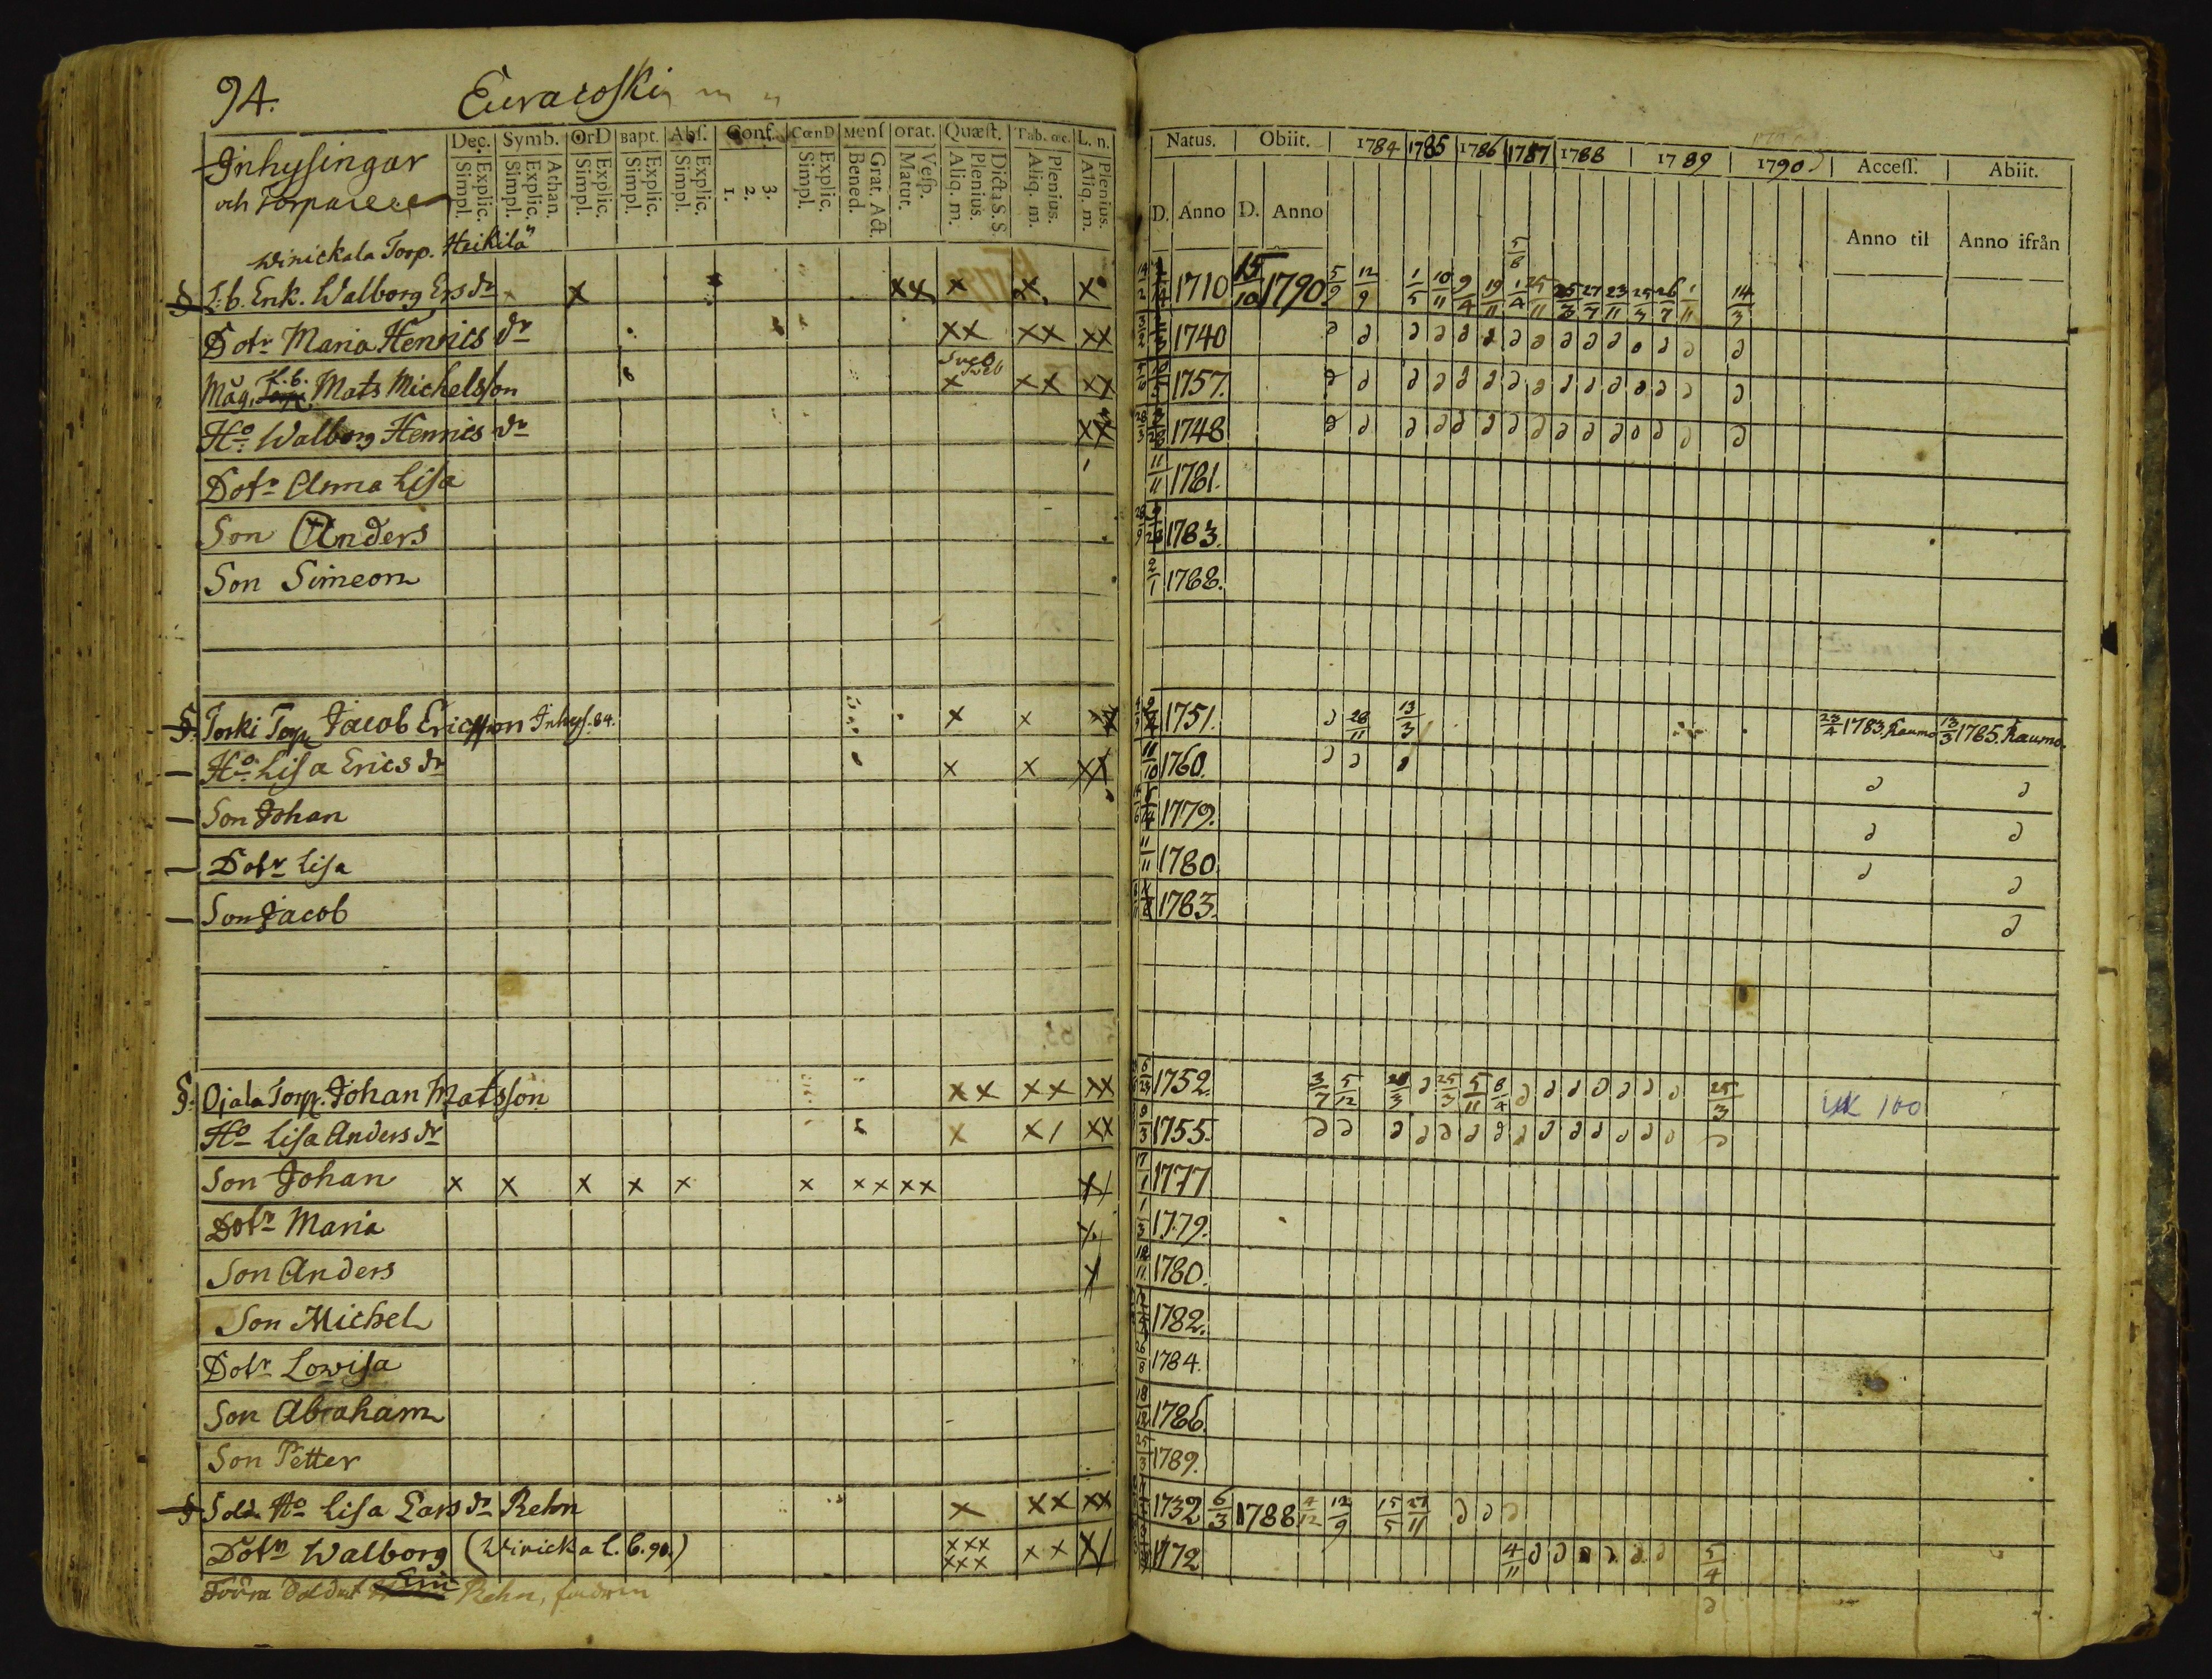 94. Euracoski
Dec. Symb. OrD Bapt. Abs. Conf. CœnD Mens orat. Quæst. Tab. œc. L. n. Natus. Obiit. 1784 1785 1786 1787 1788 1789 1790 Access. Abiit.
Explic. Simpl. Athan. Explic. Simpl. Explic. Simpl. Explic. Simpl. Explic. Simpl. 3. 2. 1. Explic. Simpl. Grat. Act. Bened. Vesp. Matut. Dicta S. S. Plenius. Aliq. m. Plenius. Aliq. m. Plenius. Aliq. m. D. Anno D. Anno Anno til Anno ifrån
Inhysingar
och Torpare
Winickala Torp. Heikilä
I. b. Enk. Walborg Ers dr x x xx x x x 14/2 1710 15/10 1790 5/9 12/9 1/5 10/11 9/4 19/11 1/4 5/8 25/11 25/3 27/7 23/11 25/3 26/7 1/11 14/3
Dotr Maria Henrics dr xx xx xx 1740 d d d d d d d d d d d d d d d
Måg. I. b. Mats Michelsson x xx xx 1757. d d d d d d d d d d d d d d d
Ho Walborg Henrics dr xx 28/3 1748 d d d d d d d d d d d d d d d
Dotr Anna Lisa 11/11 1781.
Son Anders 28/9 1783.
Son Simeon 2/1 1788.
Torki Torp Jacob Ericsson Inhys. 84. x x 1751. d 28/11 13/3 23/4 1783. Raumo 13/3 1785. Raumo.
Ho Lisa Erics dr x x xx 11/10 1760. d d d d d
Son Johan 14/6 1779. d d
Dotr Lisa 11/11 1780. d d
Son Jacob 1783. d
Ojala Torp. Johan Matsson xx xx xx 1752 3/7 5/12 28/3 d 25/3 5/11 8/4 d d d d d d d 25/3 UK 100
Ho Lisa Anders dr x x/ xx 1755. d d d d d d d d d d d d d d d
Son Johan x x x x x x xx xx x/ 17/1 1777
Dotr Maria x 1/3 1779.
Son Anders x 1780.
Son Michel 1782.
Dotr Lowisa 26/8 1784.
Son Abraham 18/12 1786.
Son Petter 25/3 1789.
Sold. Ho Lisa Lars dr Rehn x xx xx 1732 6/3 1788 4/12 12/9 15/5 27/11 d d d
Dotr Walborg (Wiricka l. b. 90.) xxx xxx xx x/ 4/11 d d d d d d 5/4
Rehn, d